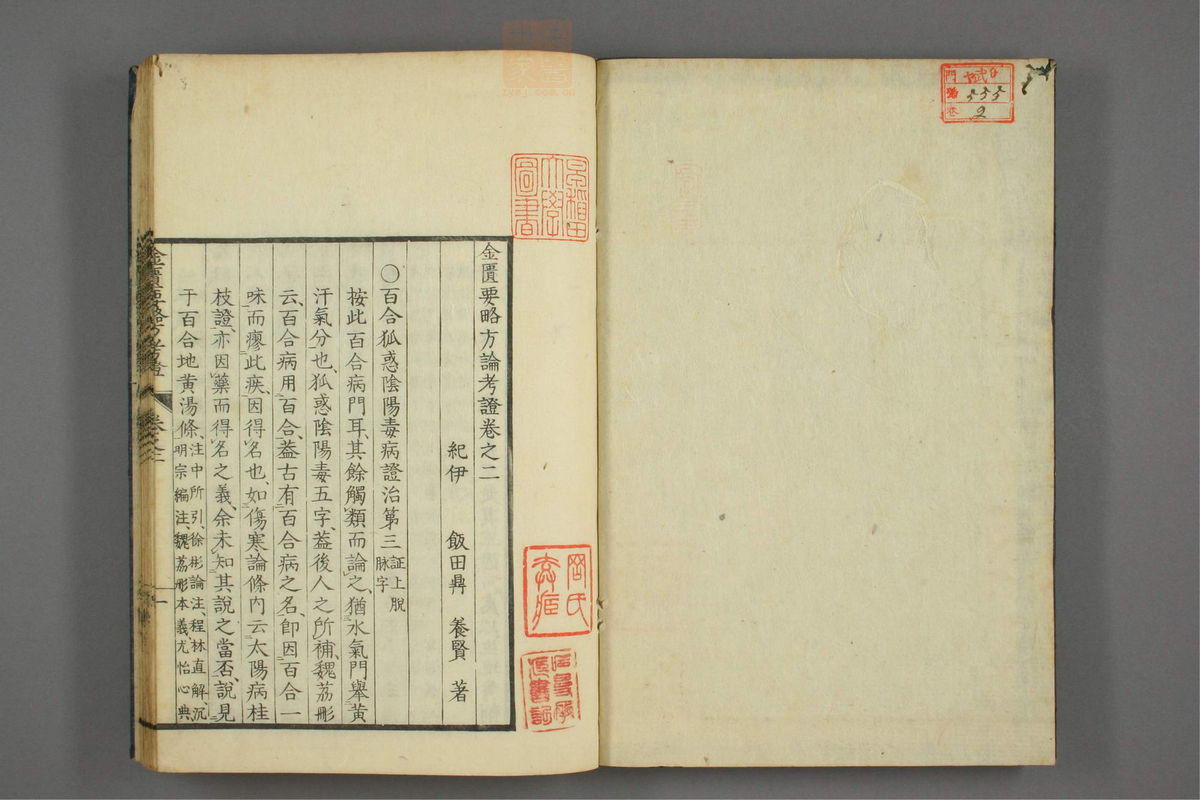 金匱要略方論考證卷之二
紀伊 飯田鼎 養賢 著
○百合狐惑陰陽毒病證治第三 証上脫脉字
按此百合病門耳、其餘觸類而論之、猶水氣門舉黃
汗氣分也、狐惑陰陽毒五字、蓋後人之所補、魏荔彤
云、百合病用百合、蓋古有百合病之名、即因百合一
味而瘳此疾、因得名也、如傷寒論條內云太陽病桂
枝證、亦因藥而得名之義、余未知其說之當否、說見
于百合地黃湯條、注中所引、徐彬論注、程林直解、沉
明宗編注、魏荔彤本義尤怡心典
金匱要略方論考證
卷之二
一
早稲田大學圖書
岡氏
門
號 555
卷 2